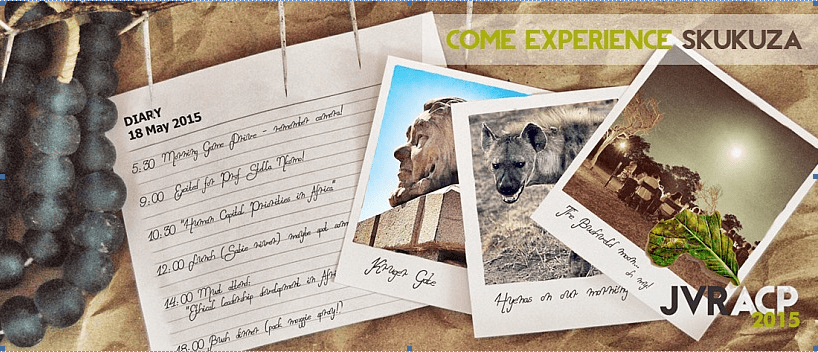 COME EXPERIENCE SKUKUZA
DIARY
18 May 2015
5:30 Morning Game Drive - remember camera!
9:00 Excited for Prof Stella Nkomo!
10:30 "Human Capital Priorities in Africa"
12:00 Lunch (Sabie river) maybe spot
14:00 Must attend:
"Ethical leadership development in
18:00 Bush dinner (pack mozzie spray!)
Kruger Gate
Hyenas on our morning
The Bushveld moon...
JVRACP
2015